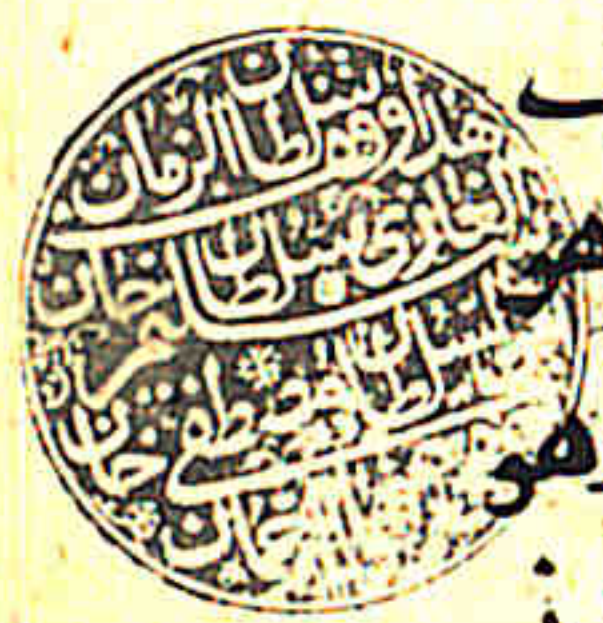 هذا وقف سلطان الزمان
الغازي سلطان سليم خان
السلطان مصطفى خان
الرحمن